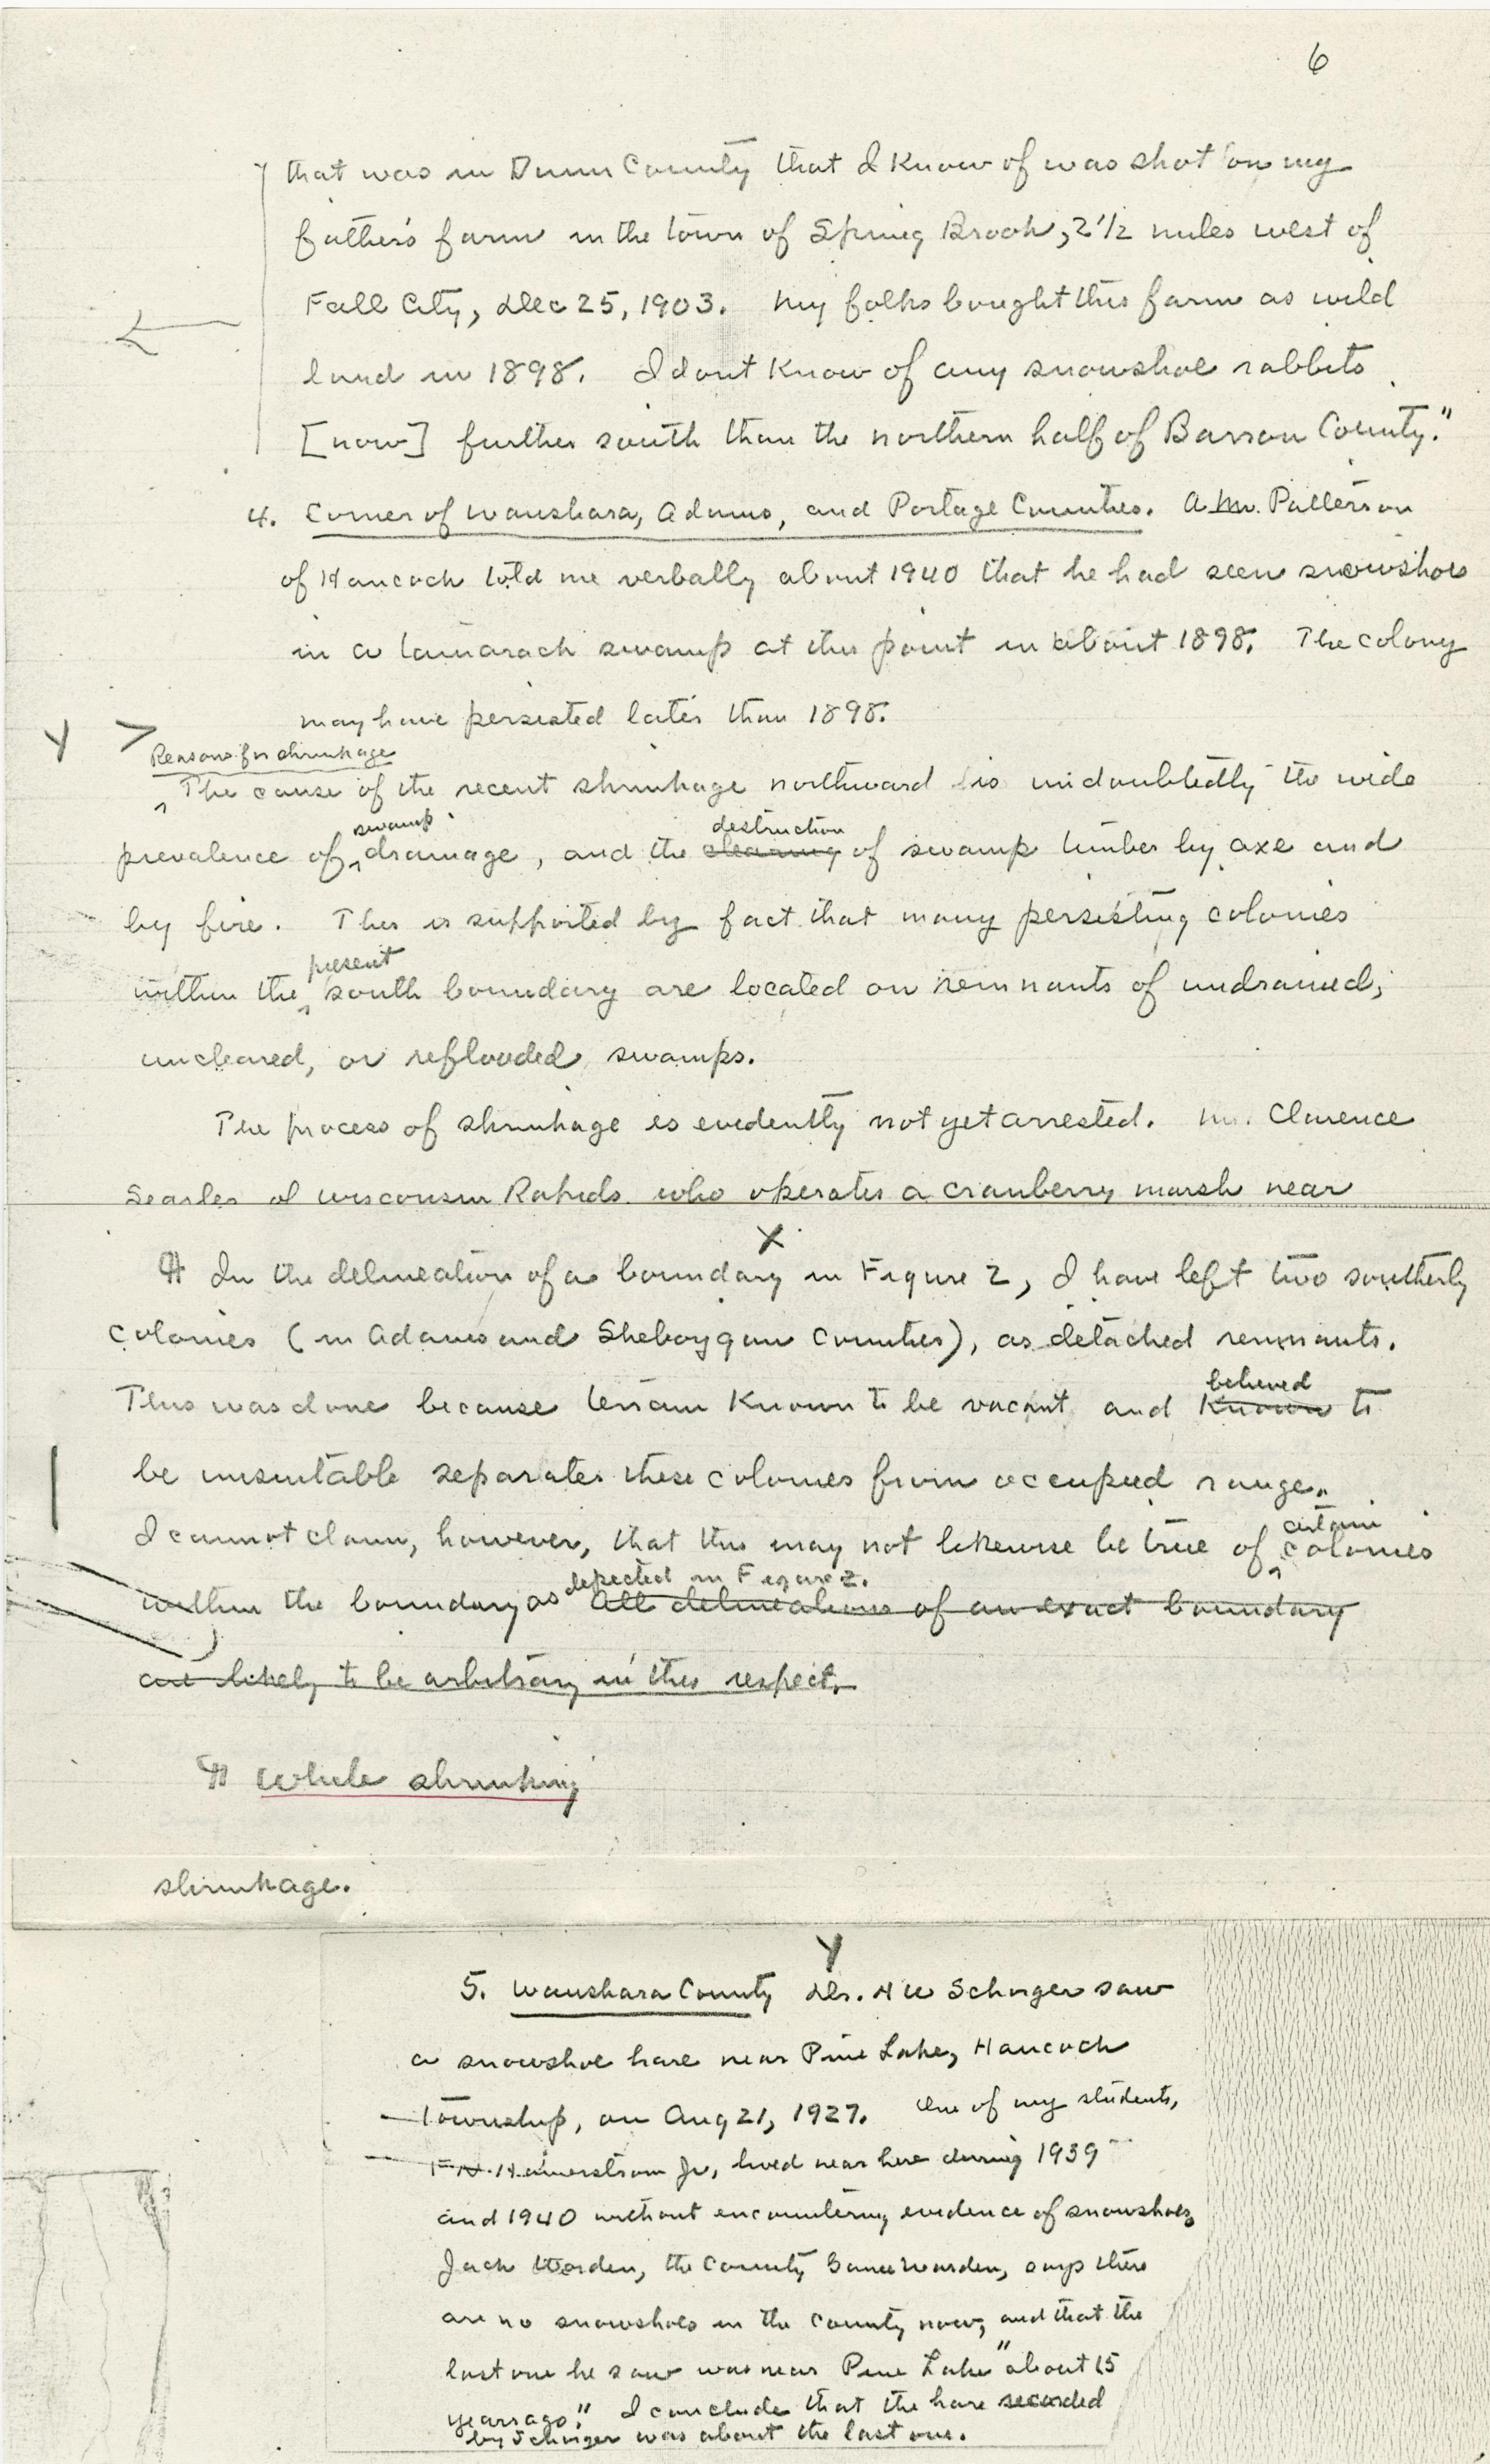 6
that was in Dunn County that I know of was shot on my
father's farm in the town of Spring Brook, 2 1/2 miles west of
Fall City, Dec 25, 1903. My folks bought this farm as wild
land in 1898. I dont know of any snowshoe rabbits
[now] further south than the northern half of Barron County."
4. Corner of Waushara, Adams, and Portage Counties. A.M. Patterson
of Hancock told me verbally about 1940 that he had seen snowshoes
in a tamarack swamp at this point in about 1898. The colony
may have persisted later than 1898.
Y >
Reasons for shrinkage
The cause of the recent shrinkage northward is undoubtedly the wide
swamp destruction
prevalence of drainage, and the clearing of swamp timber by axe and
by fire. This is supported by fact that many persisting colonies
present
within the south boundary are located on remnants of undrained,
uncleared, or reflooded swamps.
The process of shrinkage is evidently not yet arrested. Mr. Clarence
Searles of Wisconsin Rapids, who operates a cranberry marsh near
X
¶ In the delineation of a boundary in Figure 2, I have left two southerly
colonies (in Adams and Sheboygan Counties), as detached remnants.
believed
This was done because terrain known to be vacant and known to
be unsuitable separates these colonies from occupied range.
certain
I cannot claim, however, that this may not likewise be true of colonies
depicted in Figure 2.
within the boundary as all delineations of an exact boundary
are likely to be arbitrary in this respect.
¶ While shrinking
shrinkage.
Y
5. Waushara County Dr. A W Schorger saw
a snowshoe hare near Pine Lake, Hancock
Township, on Aug 21, 1927. One of my students,
F.N. Hamerstrom Jr., lived near here during 1939
and 1940 without encountering evidence of snowshoes.
Jack Worden, the County Game Warden, says there
are no snowshoes in the County now, and that the
last one he saw was near Pine Lake "about 15
years ago." I conclude that the hare recorded
by Schorger was about the last one.